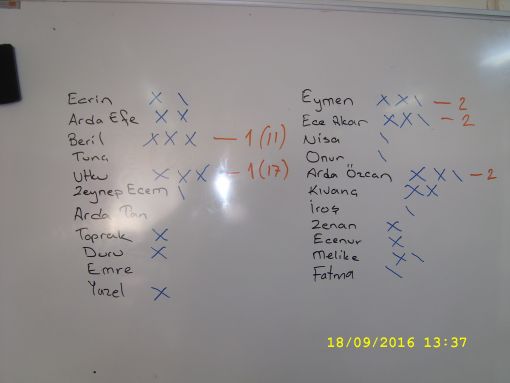 Ecrin X \
Arda Efe X X
Beril X X X — 1 (11)
Tuna
Utku X X X — 1 (17)
Zeynep Ecem \
Arda Tan
Toprak X
Duru X
Emre
Yazel X
Eymen X X \ — 2
Ece Akar X X \ — 2
Nisa \
Onur \
Arda Özcan X X \ — 2
Kıvanç X X
\
Zenan X
Ecenur X
Melike X \
Fatma \
18/09/2016 13:37